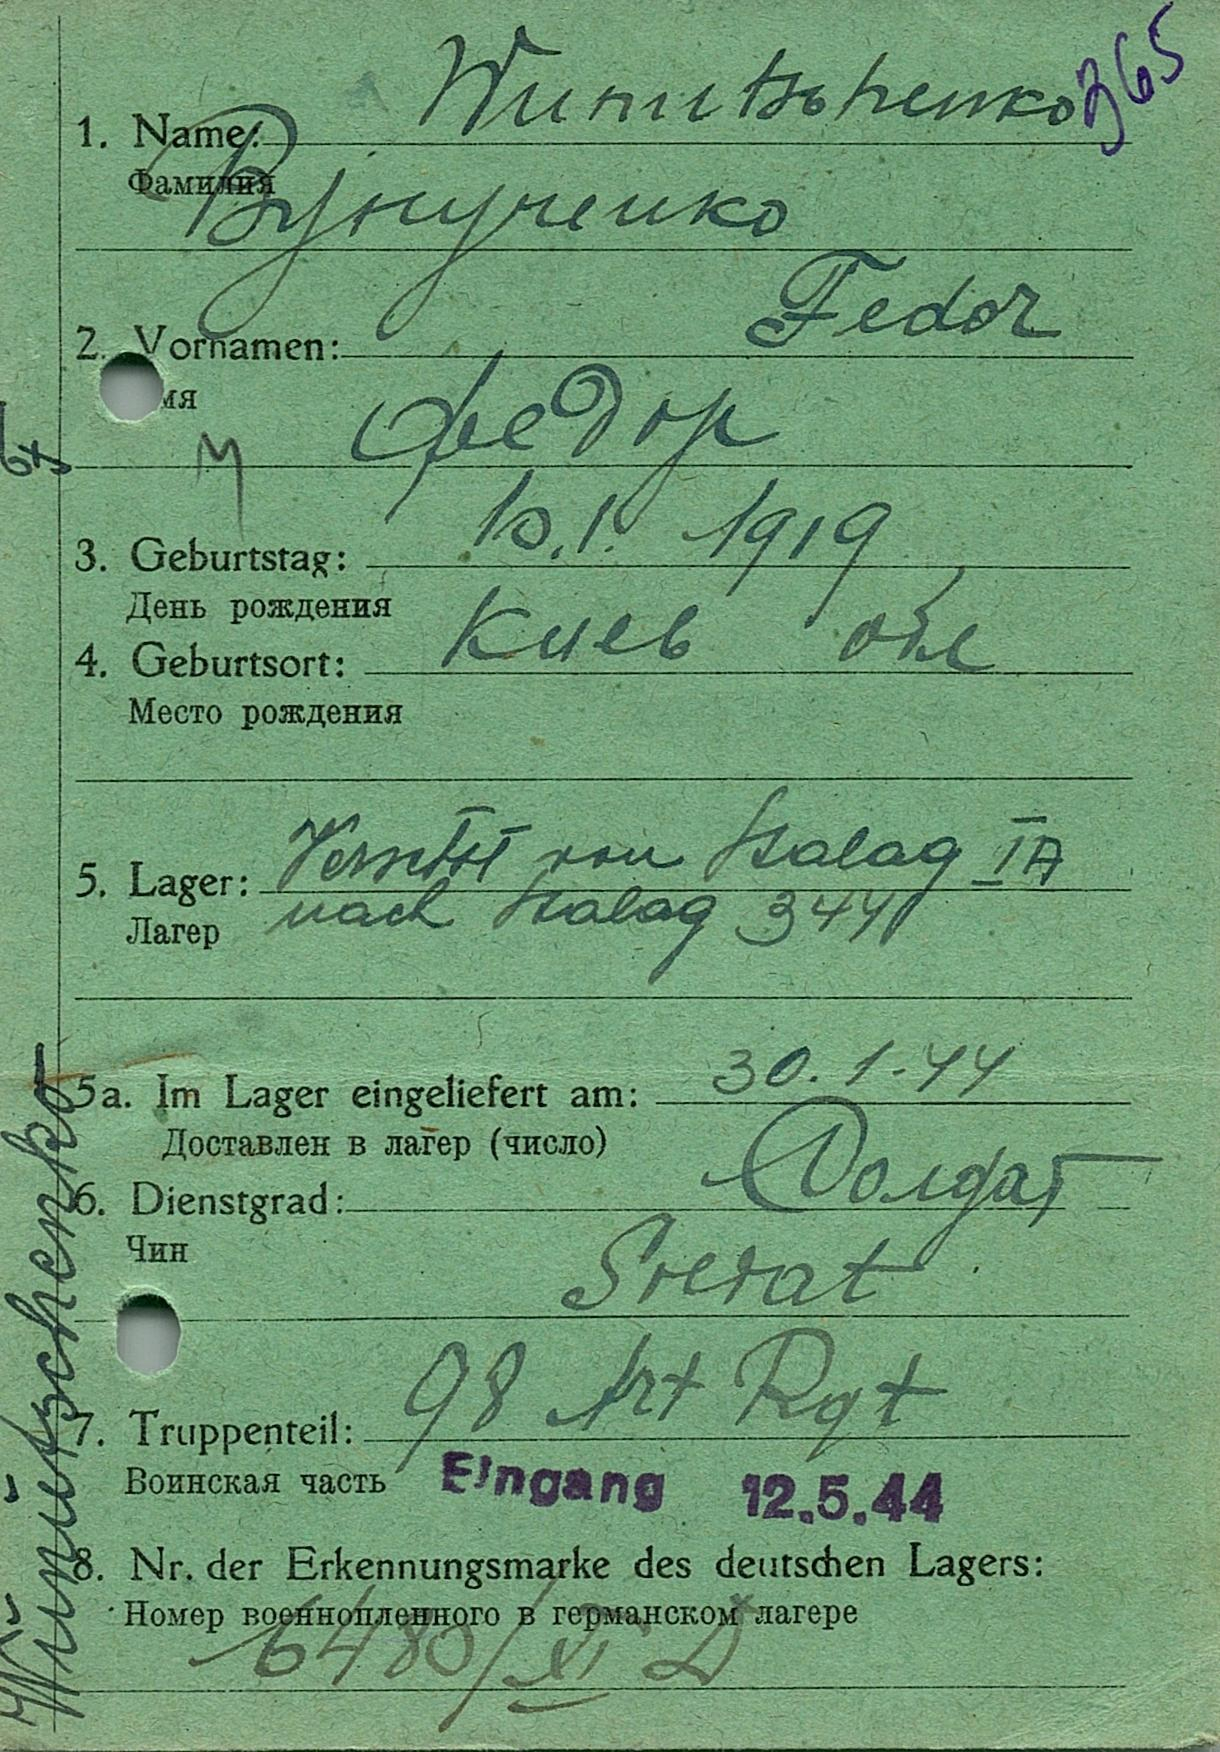 365
1. Name: Winnitschenko
Фамилия Вунученко
2. Vornamen: Fedor
мя Федор
М
3. Geburtstag: 10.1.1919
День рождения
4. Geburtsort: Киев обл
Место рождения
5. Lager: Versetzt von Stalag IA
Лагер nach Stalag 344
5a. Im Lager eingeliefert am: 30.1.44
Доставлен в лагер (число)
6. Dienstgrad: Солдат
Чин
Soldat
7. Truppenteil: 98 Art Rgt
Воинская часть Eingang 12.5.44
8. Nr. der Erkennungsmarke des deutschen Lagers:
Номер военнопленного в германском лагере
6480/XI D
Winnitschenko